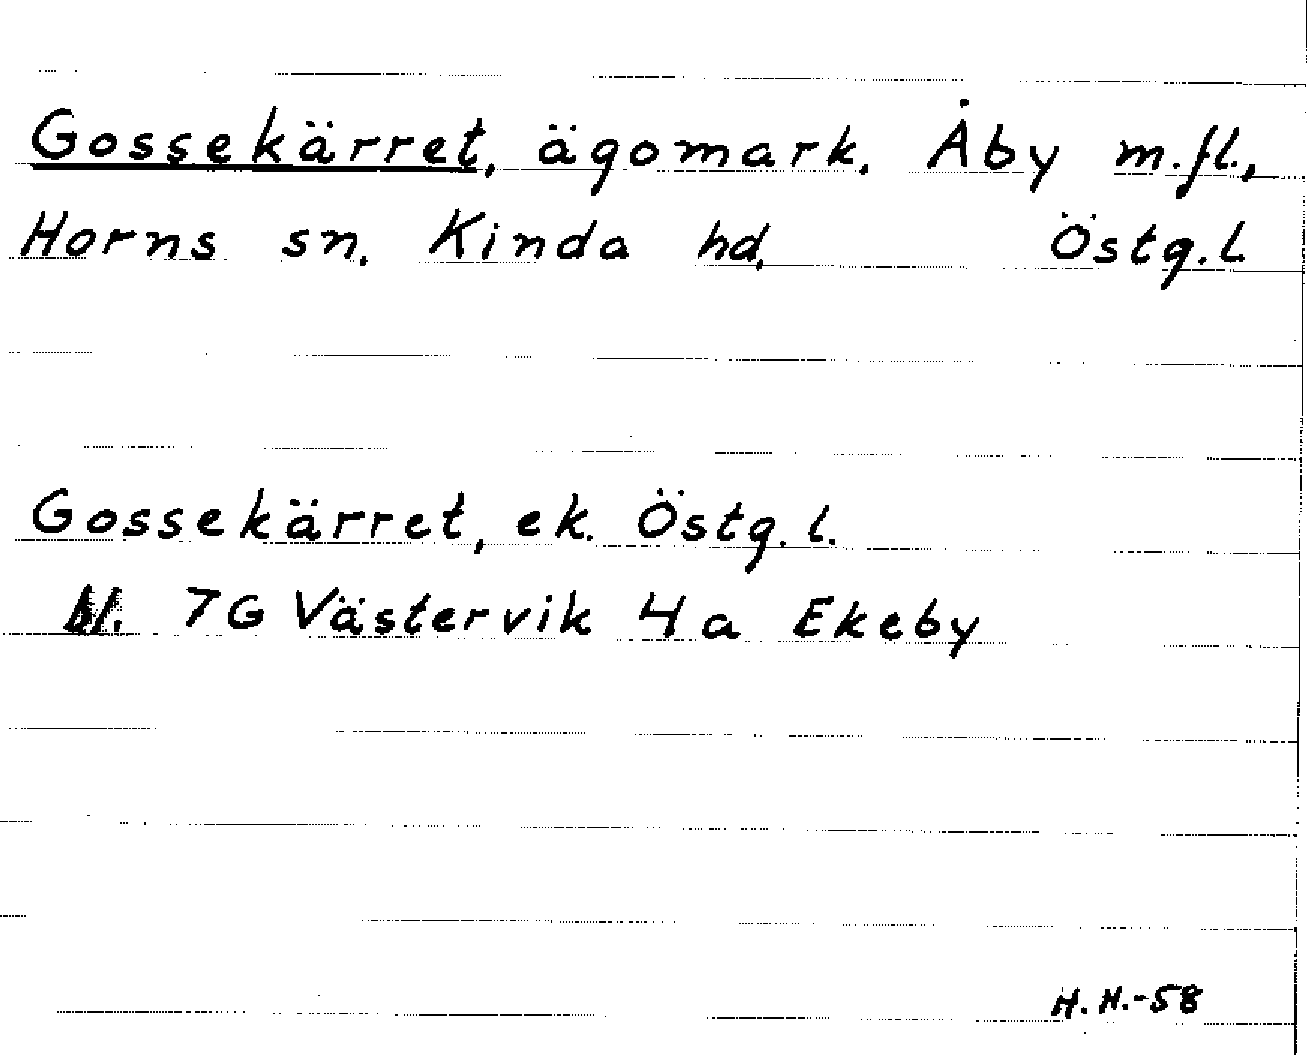 Gossekärret, ägomark. Åby m.fl.,
Horns sn. Kinda hd. Östg.l
Gossekärret, ek. Östg.l.
Bl. 7G Västervik 4a Ekeby
H.H.-58